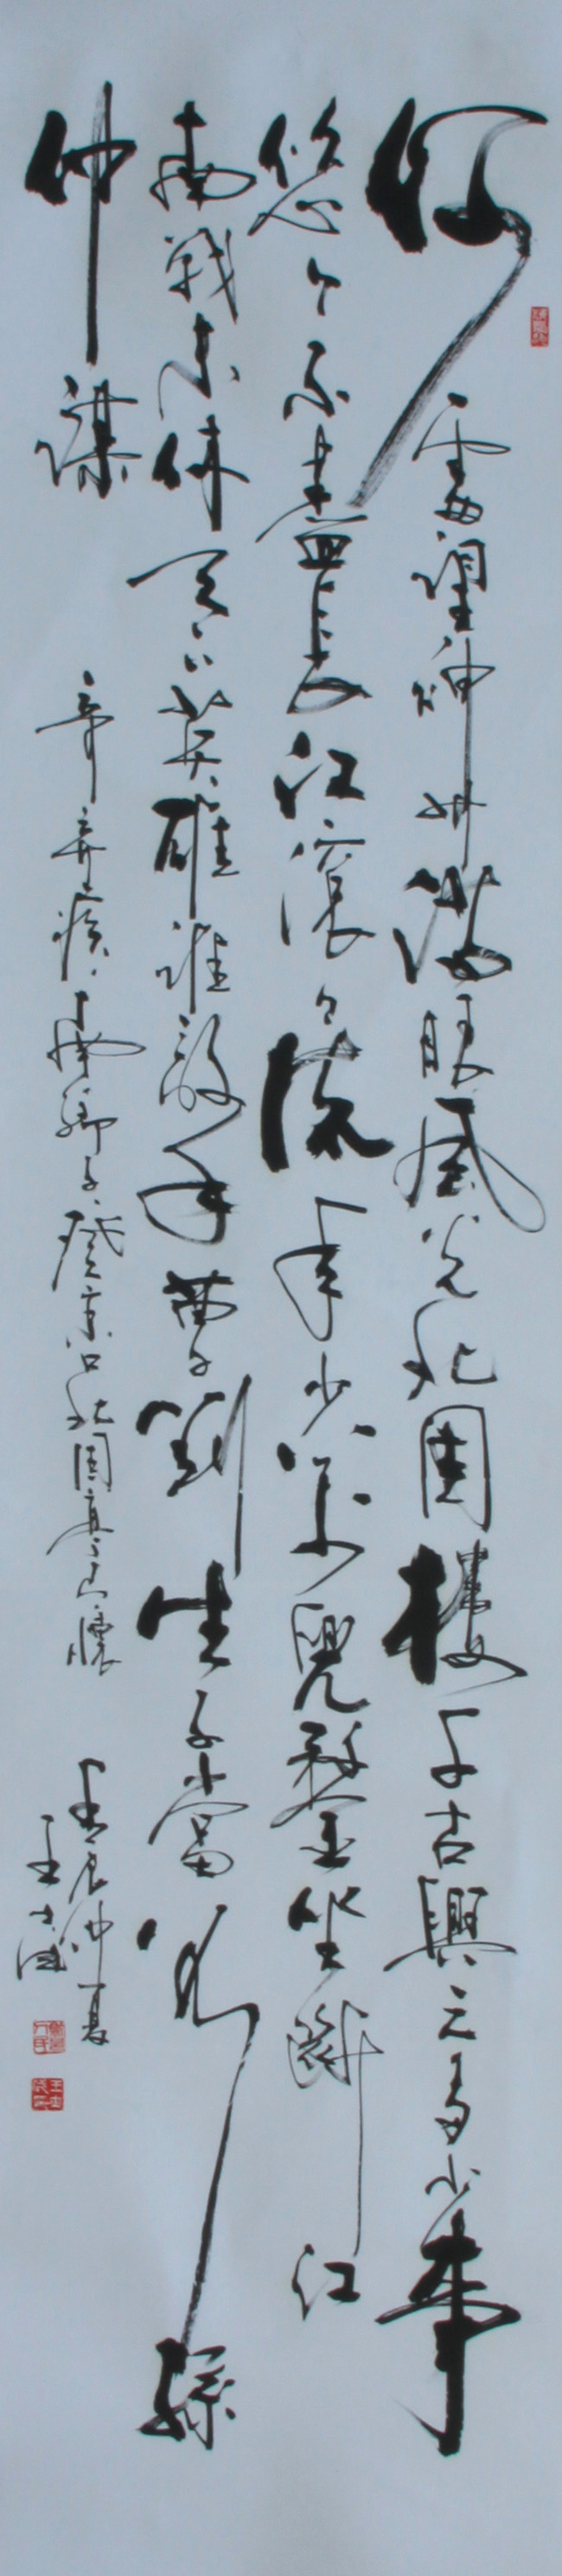 何處望神州滿眼風光北固樓千古興亡多少事
悠々不盡長江滾々流年少萬兜鍪坐斷江
南戰未休天下英雄誰敵手曹劉生子當如孫
仲謀
辛棄疾南鄉子登京口北固亭有懷
壬辰仲夏